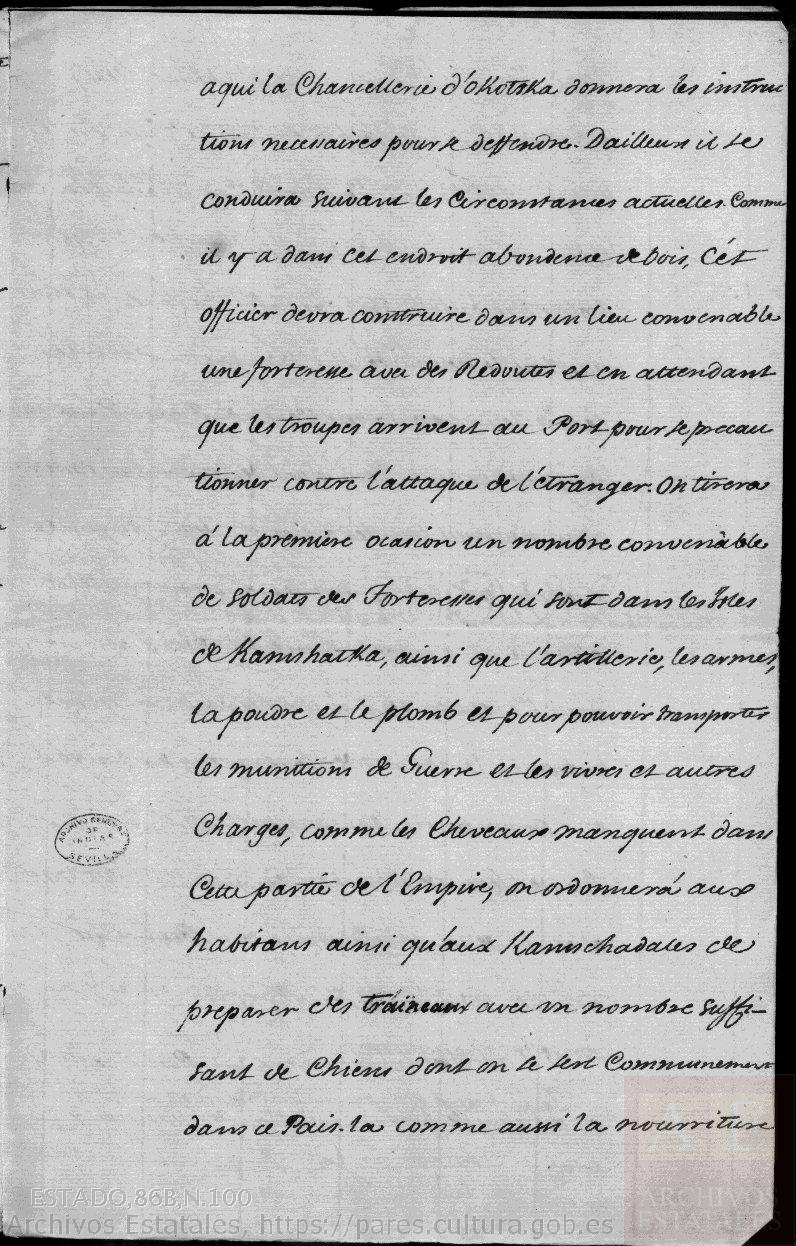 aqui la Chancellerie d'oKotsKa donnera les instruc
tions necessaires pour se deffendre. Dailleurs il se
conduira suivant les Circonstances actuelles. Comme
il y a dans cet endroit abondence de bois, Cét
officier devra construire dans un lieu convenable
une forteresse avec des Redoutes et en attendant
que les troupes arrivent au Port pour se precau
tionner contre l'attaque de l'etranger. On tirera
á la premiere ocasion un nombre convenàble
de Soldats des Forteresses qui sont dans les Isles
de KamshatKa, ainsi que l'artillerie, les armes,
la poudre et le plomb et pour pouvoir transporter
les munitions de Guerre et les vivres et autres
Charges, comme les Cheveaux manquent dans
Cette partie de l'Empire, on ordonnerá aux
habitans ainsi qu'aux Kamschadales de
preparer des traineaux avec un nombre suffi-
sant de Chiens dont on se sert Communement
dans ce Pais-la comme aussi la nourriture
ARCHIVO GENERAL
DE
INDIAS
SEVILLA
ESTADO,86B,N.100
Archivos Estatales, https://pares.cultura.gob.es
ARCHIVOS
ESTATALES